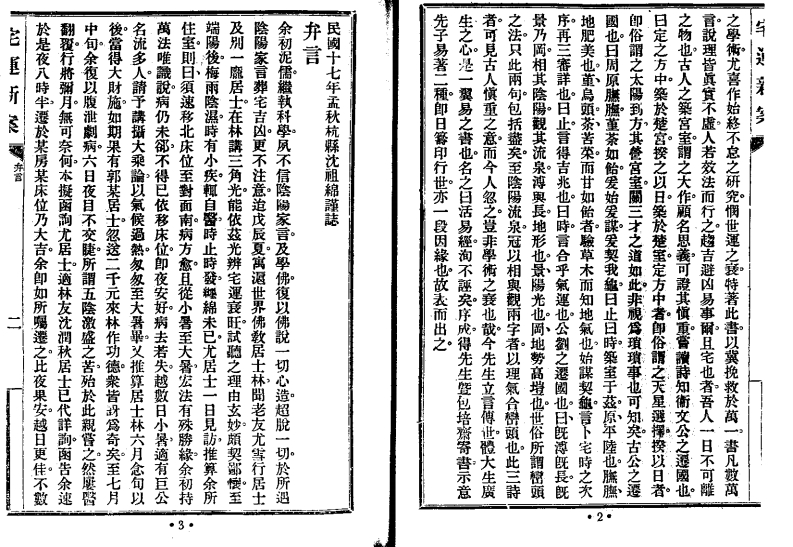 宅運新案
之學術尤喜作始終不怠之研究憫世運之衰特著此書以冀挽救於萬一書凡數萬
言說理皆真實不虛人若效法而行之趨吉避凶易事爾且宅也者吾人一日不可離
之物也古人之築宮室謂之大作顧名思義可證其愼重嘗讀詩知衛文公之遷國也
曰定之方中築於楚宮揆之以日築於楚室定方中者卽俗謂之天星選擇揆以日者
卽俗謂之太陽到方其營宮室關三才之道如此非視爲瑣瑣事也可知矣古公之遷
國也曰周原膴膴菫荼如飴爰始爰謀爰契我龜曰止曰時築室于茲原平陸也膴膴
地肥美也菫烏頭荼苦菜而甘如飴者驗草木而知地氣也始謀契龜言卜宅時之次
序再三審詳也曰止言得吉兆也曰時言合乎氣運也公劉之遷國也曰旣溥旣長旣
景乃岡相其陰陽觀其流泉溥與長地形也景陽光也岡地勢高塏也世俗所謂巒頭
之法只此兩句包括盡矣至陰陽流泉冠以相與觀兩字者以理氣合巒頭也此三詩
者可見古人愼重之意而今人忽之豈非學術之衰也哉今先生立言傳世體大生廣
生之心是一翼易之書也名之曰活易經洵不誣矣序成得先生曁包培齋寄書示意
先子易著二種卽日籌印行世亦一段因緣也故表而出之
•2•
民國十七年孟秋杭縣沈祖緜謹誌
弁言
余初泥儒繼執科學夙不信陰陽家言及學佛復以佛說一切心造超脫一切於所遇
陰陽家言葬宅吉凶更不注意迨戊辰夏寓滬世界佛敎居士林聞老友尤雪行居士
及別一龐居士在林講三角光能依茲光辨宅運衰旺試聽之理由玄妙頗契鄙懷至
端陽後梅雨陰濕時有小疾輒自醫時止時發纏綿未已尤居士一日見訪推算余所
住室則曰須速移北床位至對面南病方愈且從小暑至大暑宏法有殊勝緣余初持
萬法唯識說病仍未郤不得已依移床位卽夜安好病去若失越數日小暑適有巨公
名流多人請予講攝大乘論以氣候過熱匆匆至大暑畢又推算居士林六月念旬以
後當得大財施如期果有郭某居士忽送二千元來林作功德衆皆訝爲奇矣至七月
中旬余復以腹泄劇病六日夜目不交睫所謂五陰激盛之苦殆於此親嘗之然屢醫
翻覆行將彌月無可奈何本擬函詢尤居士適林友沈潤秋居士已代詳詢函告余速
於是夜八時半遷於某房某床位乃大吉余卽如所囑遷之比夜果安越日更佳不數
宅運新案
弁言
二
•3•